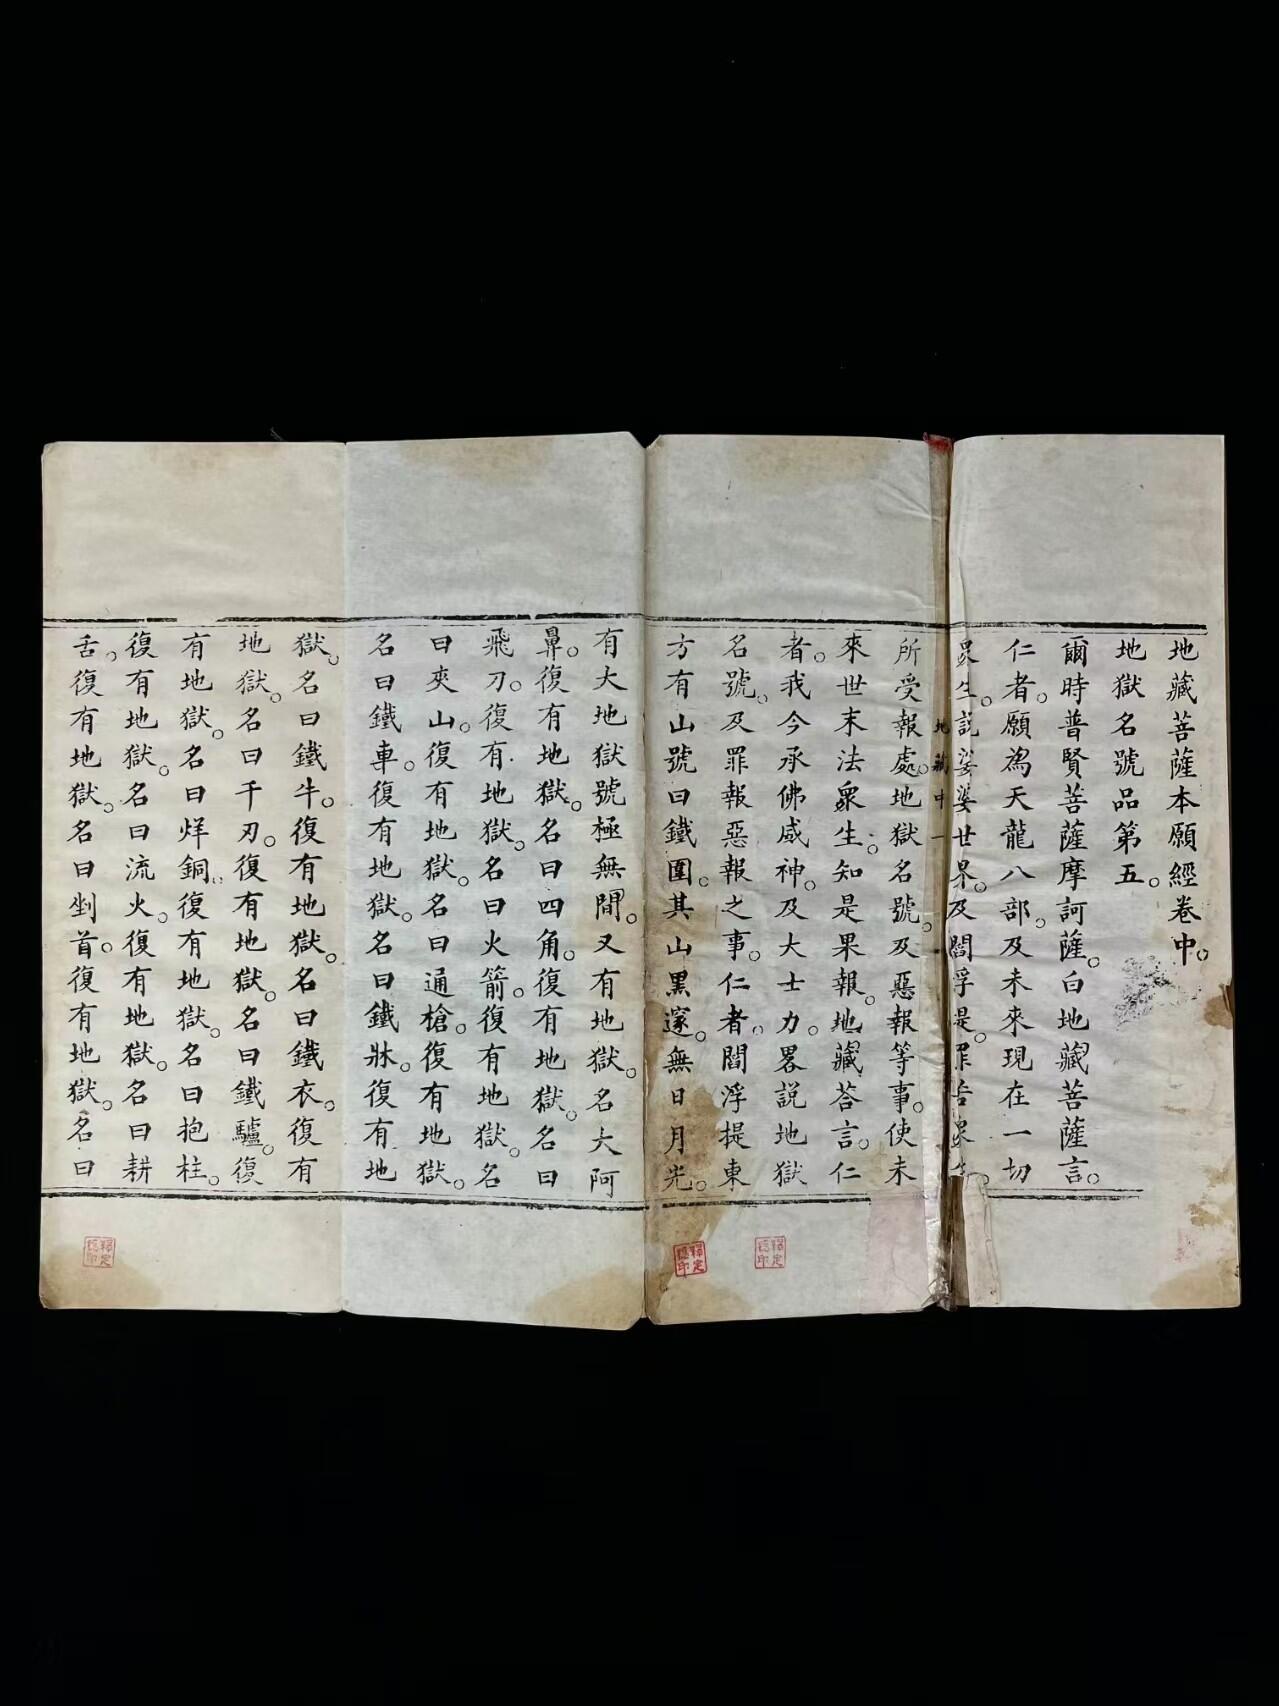 地藏菩薩本願經卷中。
地獄名號品第五。
爾時普賢菩薩摩訶薩。白地藏菩薩言。
仁者。願為天龍八部。及未來現在一切
眾生。說娑婆世界。及閻浮提。罪苦眾生。
地藏中 一
所受報處。地獄名號。及惡報等事。使未
來世末法眾生。知是果報。地藏荅言。仁
者。我今承佛威神。及大士力。畧說地獄
名號。及罪報惡報之事。仁者。閻浮提東
方有山號曰鐵圍。其山黑邃。無日月光。
有大地獄號極無間。又有地獄。名大阿
鼻。復有地獄。名曰四角。復有地獄。名曰
飛刀。復有地獄。名曰火箭。復有地獄。名
曰夾山。復有地獄。名曰通槍。復有地獄。
名曰鐵車。復有地獄。名曰鐵牀。復有地
獄。名曰鐵牛。復有地獄。名曰鐵衣。復有
地獄。名曰千刃。復有地獄。名曰鐵驢。復
有地獄。名曰烊銅。復有地獄。名曰抱柱。
復有地獄。名曰流火。復有地獄。名曰耕
舌。復有地獄。名曰剉首。復有地獄。名曰